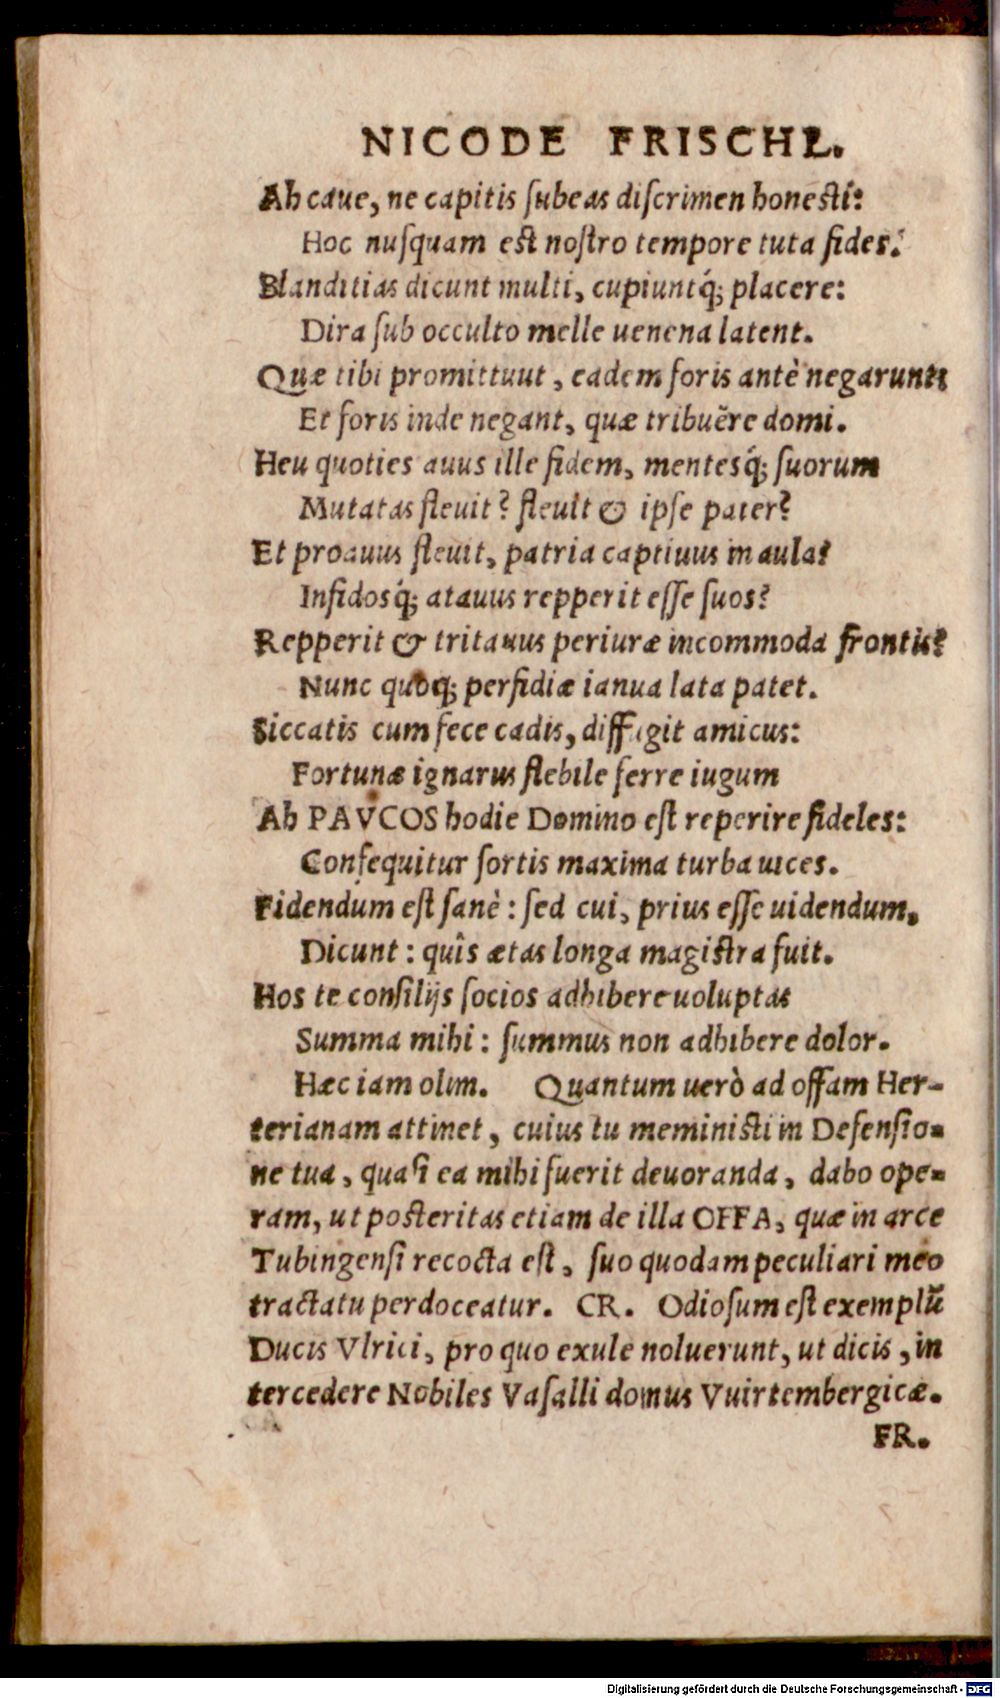 NICODE FRISCHL.
Ah caue, ne capitis ſubeas diſcrimen honeſti:
Hoc nuſquam eſt noſtro tempore tuta fides.
Blanditias dicunt multi, cupiuntq́; placere:
Dira ſub occulto melle uenena latent.
Quæ tibi promittuut, eadem foris antè negarunt:
Et foris inde negant, quæ tribuêre domi.
Heu quoties auus ille fidem, mentesq́; ſuorum
Mutatas fleuit? fleuit & ipſe pater?
Et proauus fleuit, patria captiuus in aula?
Infidosq́; atauus repperit eſſe ſuos?
Repperit & tritauus periuræ incommoda frontis?
Nunc quoq; perfidiæ ianua lata patet.
Siccatis cum fece cadis, diffugit amicus:
Fortunæ ignarus flebile ferre iugum
Ah PAVCOS hodie Domino eſt reperire fideles:
Conſequitur ſortis maxima turba uices.
Fidendum eſt ſanè: ſed cui, prius eſſe uidendum,
Dicunt: quîs ætas longa magiſtra fuit.
Hos te conſilijs ſocios adhibere uoluptas
Summa mihi: ſummus non adhibere dolor.
Hæc iam olim. Quantum uerò ad offam Her-
terianam attinet, cuius tu meminiſti in Defenſio-
ne tua, quaſi ea mihi fuerit deuoranda, dabo ope-
ram, ut poſteritas etiam de illa OFFA, quæ in arce
Tubingenſi recocta eſt, ſuo quodam peculiari meo
tractatu perdoceatur. CR. Odioſum eſt exemplũ
Ducis Vlrici, pro quo exule noluerunt, ut dicis, in
tercedere Nobiles Vaſalli domus Vuirtembergicæ.
FR.
Digitalisierung gefördert durch die Deutsche Forschungsgemeinschaft - DFG